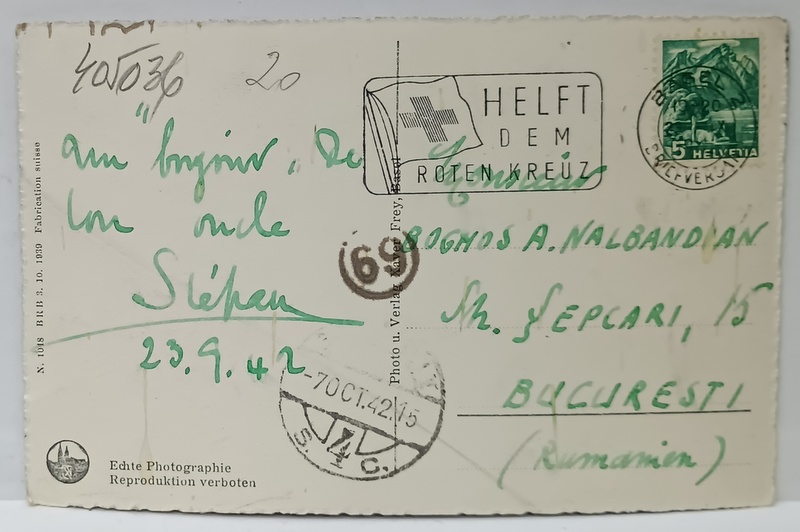 405036 20
un bonjour, de
ton oncle
Stépan
23.9.42
N. 1018 BRB 3. 10. 1939 Fabrication suisse
Echte Photographie
Reproduktion verboten
Photo u. Verlag Xaver Frey, Basel
69
-7 OCT. 42. 15
S. 4 C.
HELFT
DEM
ROTEN KREUZ
BASEL
BRIEFVERSAND
5 HELVETIA
Monsieur
BOGHOS A. NALBANDIAN
Str. ȘEPCARI, 15
BUCUREȘTI
(Rumänien)